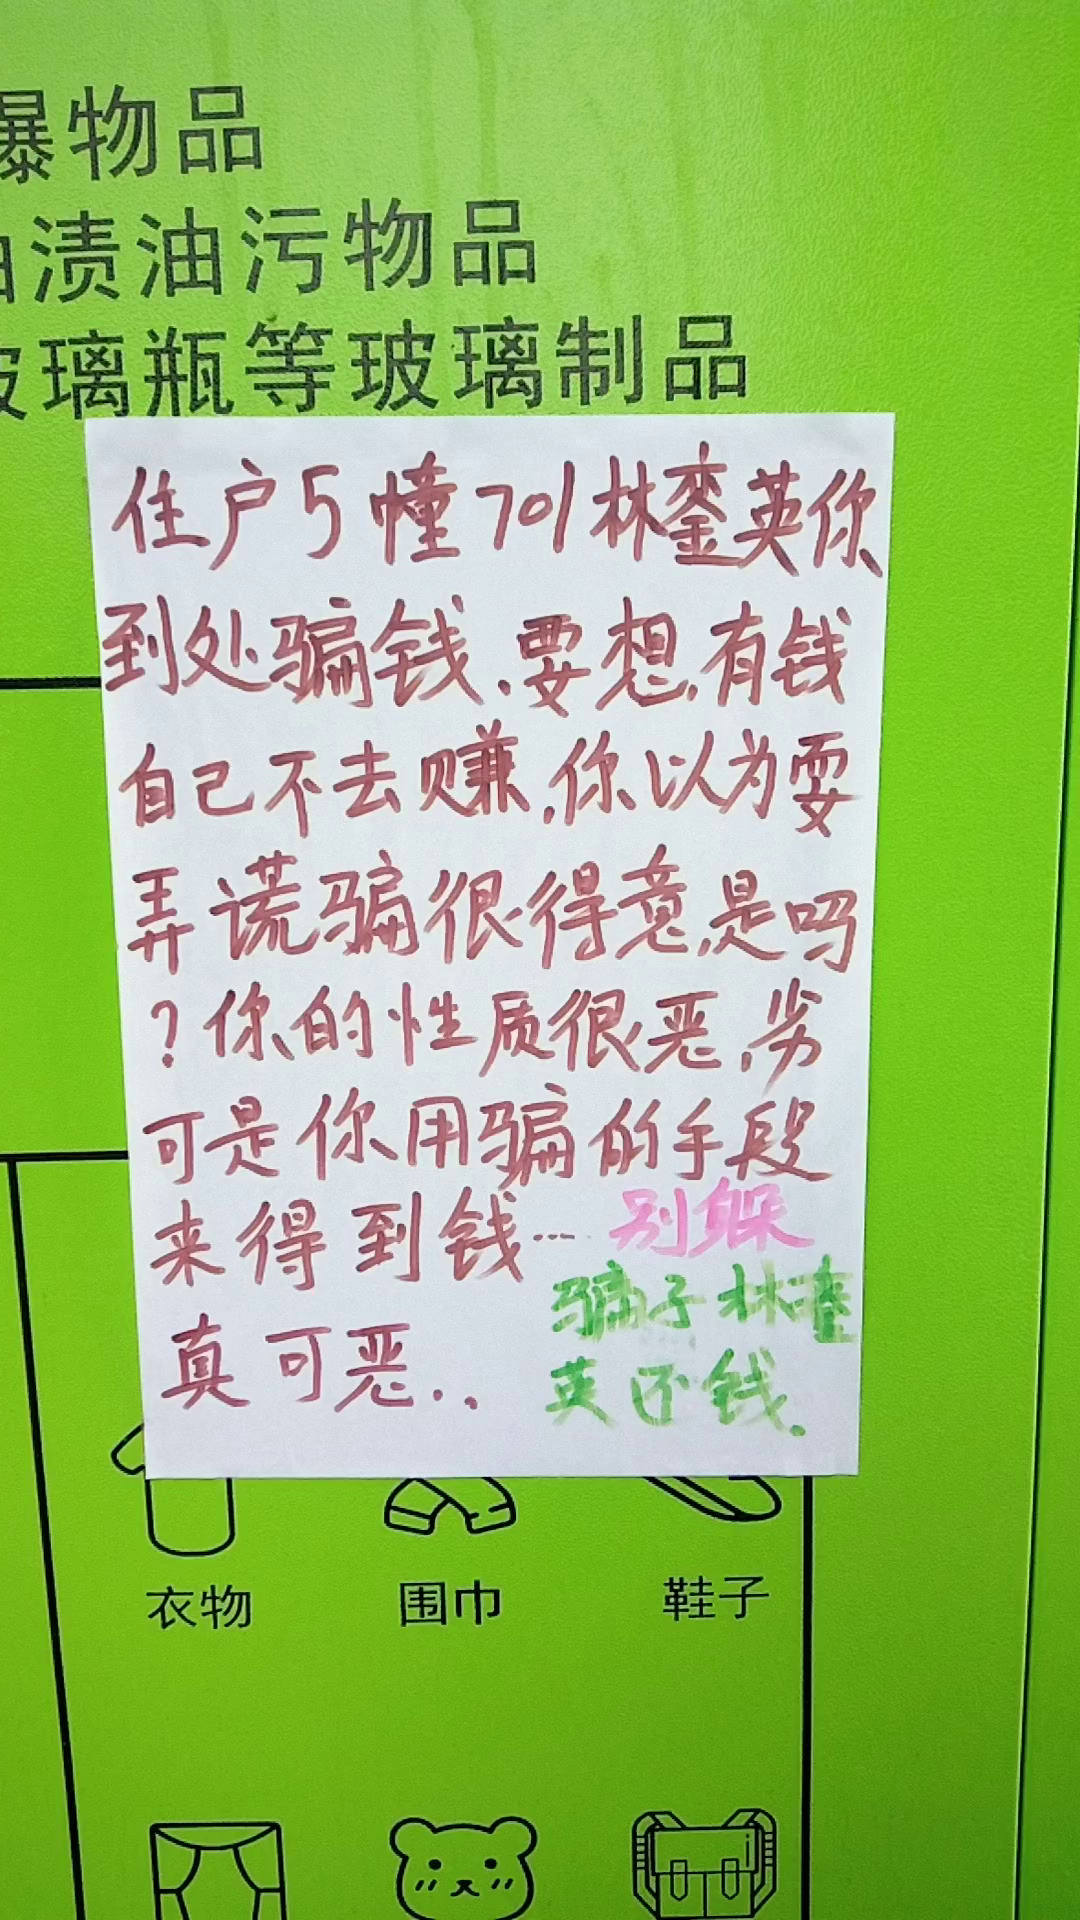 爆物品
油渍油污物品
玻璃瓶等玻璃制品
住户5幢701林銮英你
到处骗钱.要想.有钱
自己不去赚.你以为耍
弄谎骗很得意.是吗
?你的性质很恶.劣
可是你用骗的手段
来得到钱…
别躲
真可恶..
骗子林銮
英还钱.
衣物
围巾
鞋子